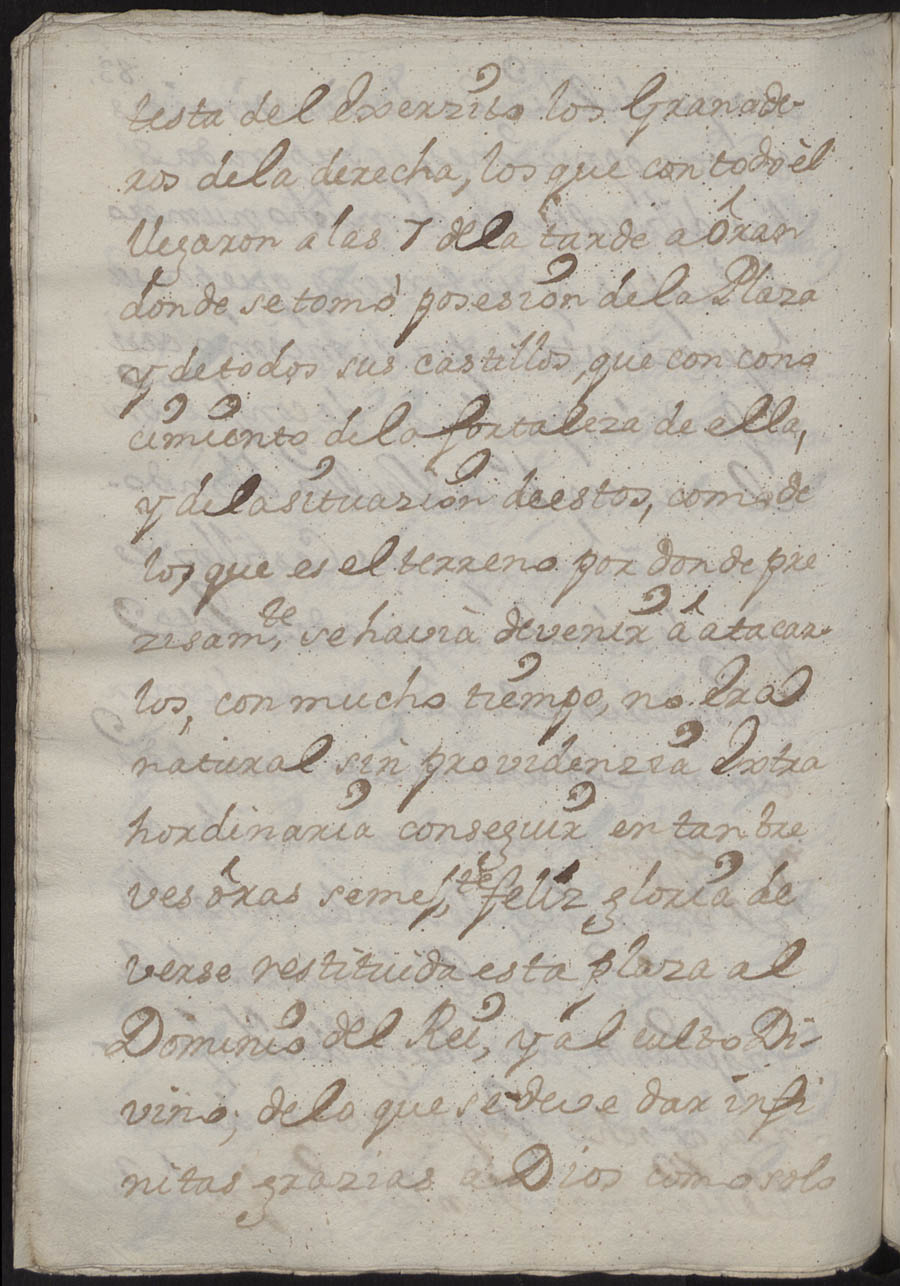 testa del Exerzito los Granade-
ros de la derecha, los que con todo èl
llegaron a las 7 de la tarde a Óran
donde se tomò posesion de la Plaza
y de todos sus castillos, que con cono
cimiento de la fortaleza de ella,
y de la situazion de estos, como de
los que es el terreno por donde pre
zisam.te se havia de venir â atacar-
los, con mucho tiempo, no Era
natural sin providenzia Extra
hordinaria conseguir en tan bre
ves òras semej.te feliz gloria de
verse restituida esta plaza al
Dominio del Rei, y ál culto Di-
vino, de lo que se deve dar infi
nitas grazias a Dios como solo